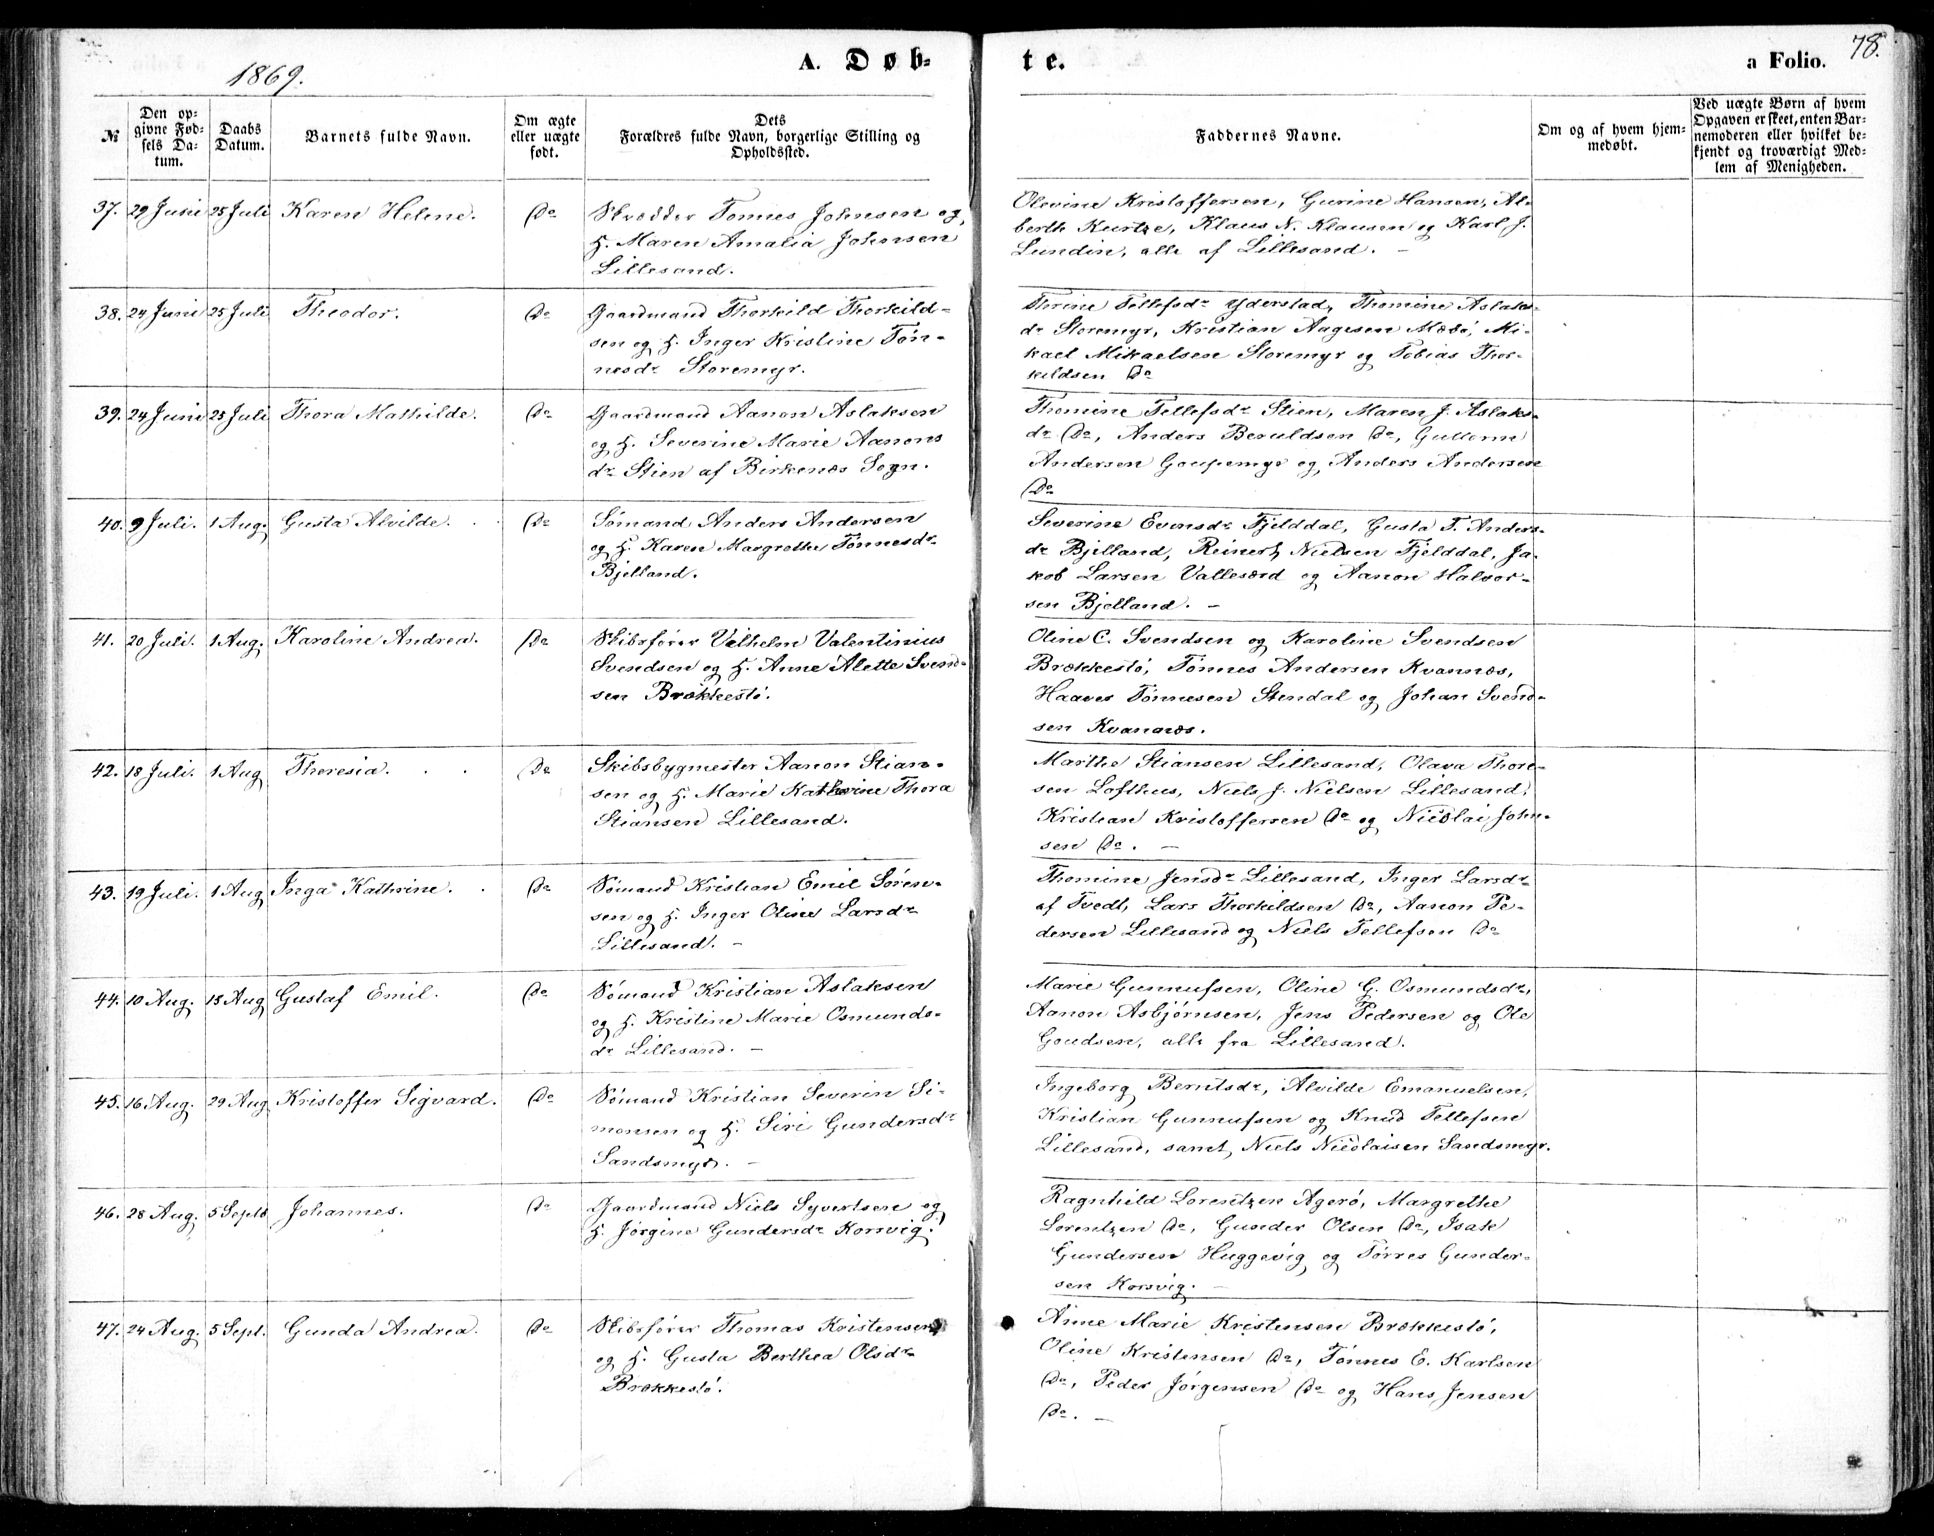 1869.
A. Døb-
te.
a Folio.
78.
№
Den op-
givne Fød-
sels Da-
tum.
Daabs
Datum.
Barnets fulde Navn.
Om ægte
eller uægte
født.
Dets
Forældres fulde Navn, borgerlige Stilling og
Opholdssted.
Faddernes Navne.
Om og af hvem hjem-
medøbt.
Ved uægte Børn af hvem
Opgaven er skeet, enten Bar-
nemoderen eller hvilket be-
kjendt og troværdigt Med-
lem af Menigheden.
37. 29 Juni 25 Juli Karen Helene. Do Skrædder Tønnes Johnsen og
H. Maren Amalia Johnsen
Lillesand.
Olevine Kristoffersen, Gurine Hansen, Al-
berth Kurtze, Klaus N. Klausen og Karl J.
Lundin, alle af Lillesand. –
38. 24 Juni 25 Juli Theodor. Do Gaardmand Thorkild Thorkild-
sen og H. Inger Kristine Tøn-
nesdr Storemyr.
Thrine Tellefsdr Yderstad, Thomine Aslaks-
dr Storemyr, Kristian Aagesen Mæsø, Mi-
kael Mikaelsen Storemyr og Tobias Thor-
kildsen Do
39. 24 Juni 25 Juli Thora Mathilde. Do Gaardmand Aanon Aslaksen
og H. Severine Marie Aanons
dr Stien af Birkenæs Sogn.
Thomine Tellefsdr Stien, Maren J. Aslaks-
dr Do, Anders Beruldsen Do, Guttorm
Andersen Goupemyr og Anders Andersen
Do
40. 9 Juli. 1 Aug. Gusta Alvilde. Do Sømand Anders Andersen
og H. Karen Margrethe Tønnesdr
Bjelland.
Severine Evensdr Fjelddal, Gusta T. Anders-
dr Bjelland, Reinert Nielsen Fjelddal, Ja-
kob Larsen Vallesværd og Aanon Halvor-
sen Bjelland. –
41. 20 Juli. 1 Aug. Karoline Andrea. Do Skibsfører Vilhelm Valentinius
Svendsen og H. Anne Alette Svend-
sen Brækkestø.
Oline C. Svendsen og Karoline Svendsen
Brækkestø, Tønnes Andersen Kvannæs,
Haaver Tønnesen Stendal og Johan Svend-
sen Kvannæs.
42. 18 Juli. 1 Aug Theresia. Do Skibsbygmester Aanon Stian-
sen og H. Marie Kathrine Thora
Stiansen Lillesand.
Marthe Stiansen Lillesand, Olava Thore-
sen Lofthus, Niels J. Nielsen Lillesand,
Kristian Kristoffersen Do og Nicolai John-
sen Do. –
43. 19 Juli. 1 Aug Inga Kathrine. Do Sømand Kristian Emil Søren-
sen og H. Inger Oline Larsdr
Lillesand. –
Thomine Jensdr Lillesand, Inger Larsdr
af Tvedt, Lars Thorkildsen Do, Aanon Pe-
dersen Lillesand og Niels Tellefsen Do
44. 10 Aug. 15 Aug Gustaf Emil. Do Sømand Kristian Aslaksen
og H. Kristine Marie Osmunds-
dr Lillesand. –
Marie Gunnufsen, Oline G. Osmundsdr,
Aanon Asbjørnsen, Jens Pedersen og Ole
Goudsen, alle fra Lillesand.
45. 16 Aug. 29 Aug Kristoffer Sigvard. Do Sømand Kristian Severin Si-
monsen og H. Siri Gundersdr
Sandsmyr. –
Ingeborg Berntsdr, Alvilde Emanuelsen,
Kristian Gunnufsen og Knud Tellefsen
Lillesand, samt Niels Nicolaisen Sandsmyr.
46. 28 Aug. 5 Septb Johannes. Do Gaardmand Niels Syvertsen og
H. Jørgine Gundersdr Korsvig.
Ragnhild Lorentzen Agerø, Margrethe
Lorentzen Do, Gunder Olsen Do, Isak
Gundersen Huggevig og Tørres Gunder-
sen Korsvig. –
47. 24 Aug. 5 Sept. Gunda Andrea. Do Skibsfører Thomas Kristensen
og H. Gusta Berthea Olsdr
Brækkestø.
Anne Marie Kristensen Brækkestø,
Oline Kristensen Do, Tønnes E. Karlsen
Do, Peder Jørgensen Do og Hans Jensen
Do. –